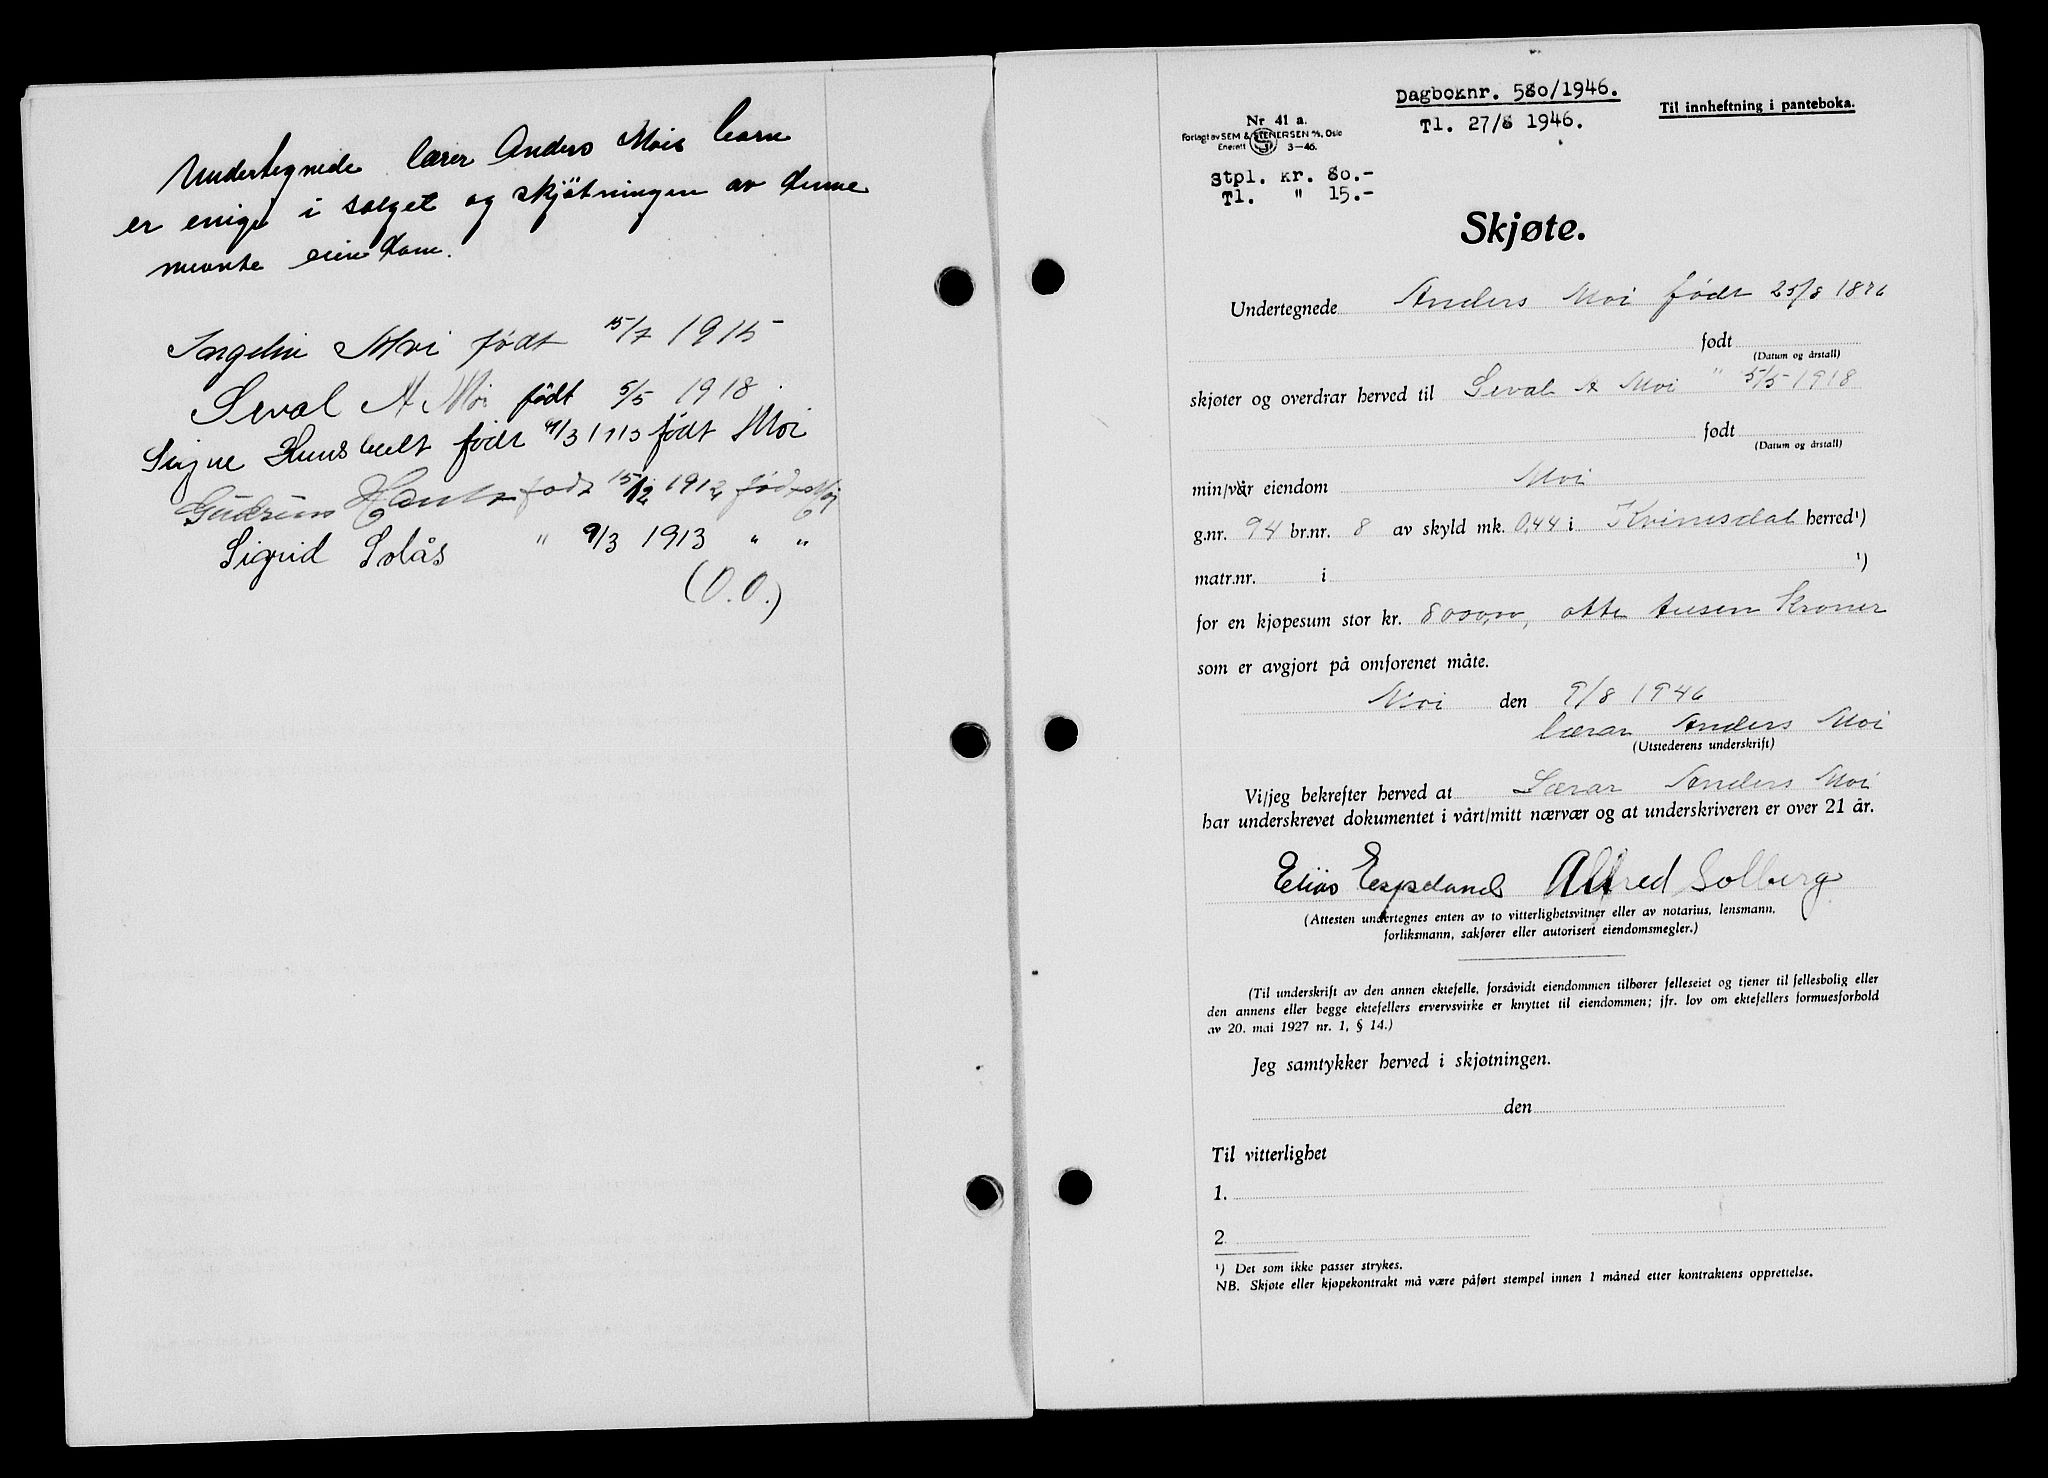 Undertegnede lærer Anders Mois barn
er enige i salget og skjötningen av denne
nevnte eiendom.
Ingelin Moi født 15/7 1915
Seval A Moi født 5/5 1918
Signe født født Moi
Gudrun født 15/12 1912 født Moi
Sigrid Solås " 9/3 1913 " "
(O.O.)
Dagboknr. 580/1946.
Tl. 27/8 1946.
Til innheftning i panteboka.
Nr 41 a.
Forlagt av SEM & STENERSEN A/S, Oslo
Enerett 3—46.
Stpl. kr. 80.-
Tl. " 15.-
Skjøte.
Undertegnede Anders Moi født 25/8 1876
født
(Datum og årstall)
skjøter og overdrar herved til Seval A Moi " 5/5 1918
født
(Datum og årstall)
min/vår eiendom Moi
g.nr. 94 br.nr. 8 av skyld mk. 0,44 i Kvinesdal herred¹)
matr.nr. i ¹)
for en kjøpesum stor kr. 8000,00, otte tusen Kroner
som er avgjort på omforenet måte.
Moi den 9/8 1946
lærar Anders Moi
(Utstederens underskrift)
Vi/jeg bekrefter herved at Lærar Anders Moi
har underskrevet dokumentet i vårt/mitt nærvær og at underskriveren er over 21 år.
Elias Espeland Alfred Solberg
(Attesten undertegnes enten av to vitterlighetsvitner eller av notarius, lensmann,
forliksmann, sakfører eller autorisert eiendomsmegler.)
(Til underskrift av den annen ektefelle, forsåvidt eiendommen tilhører felleseiet og tjener til fellesbolig eller
den annens eller begge ektefellers ervervsvirke er knyttet til eiendommen; jfr. lov om ektefellers formuesforhold
av 20. mai 1927 nr. 1, § 14.)
Jeg samtykker herved i skjøtningen.
den
Til vitterlighet
1.
2.
¹) Det som ikke passer strykes.
NB. Skjøte eller kjøpekontrakt må være påført stempel innen 1 måned etter kontraktens opprettelse.